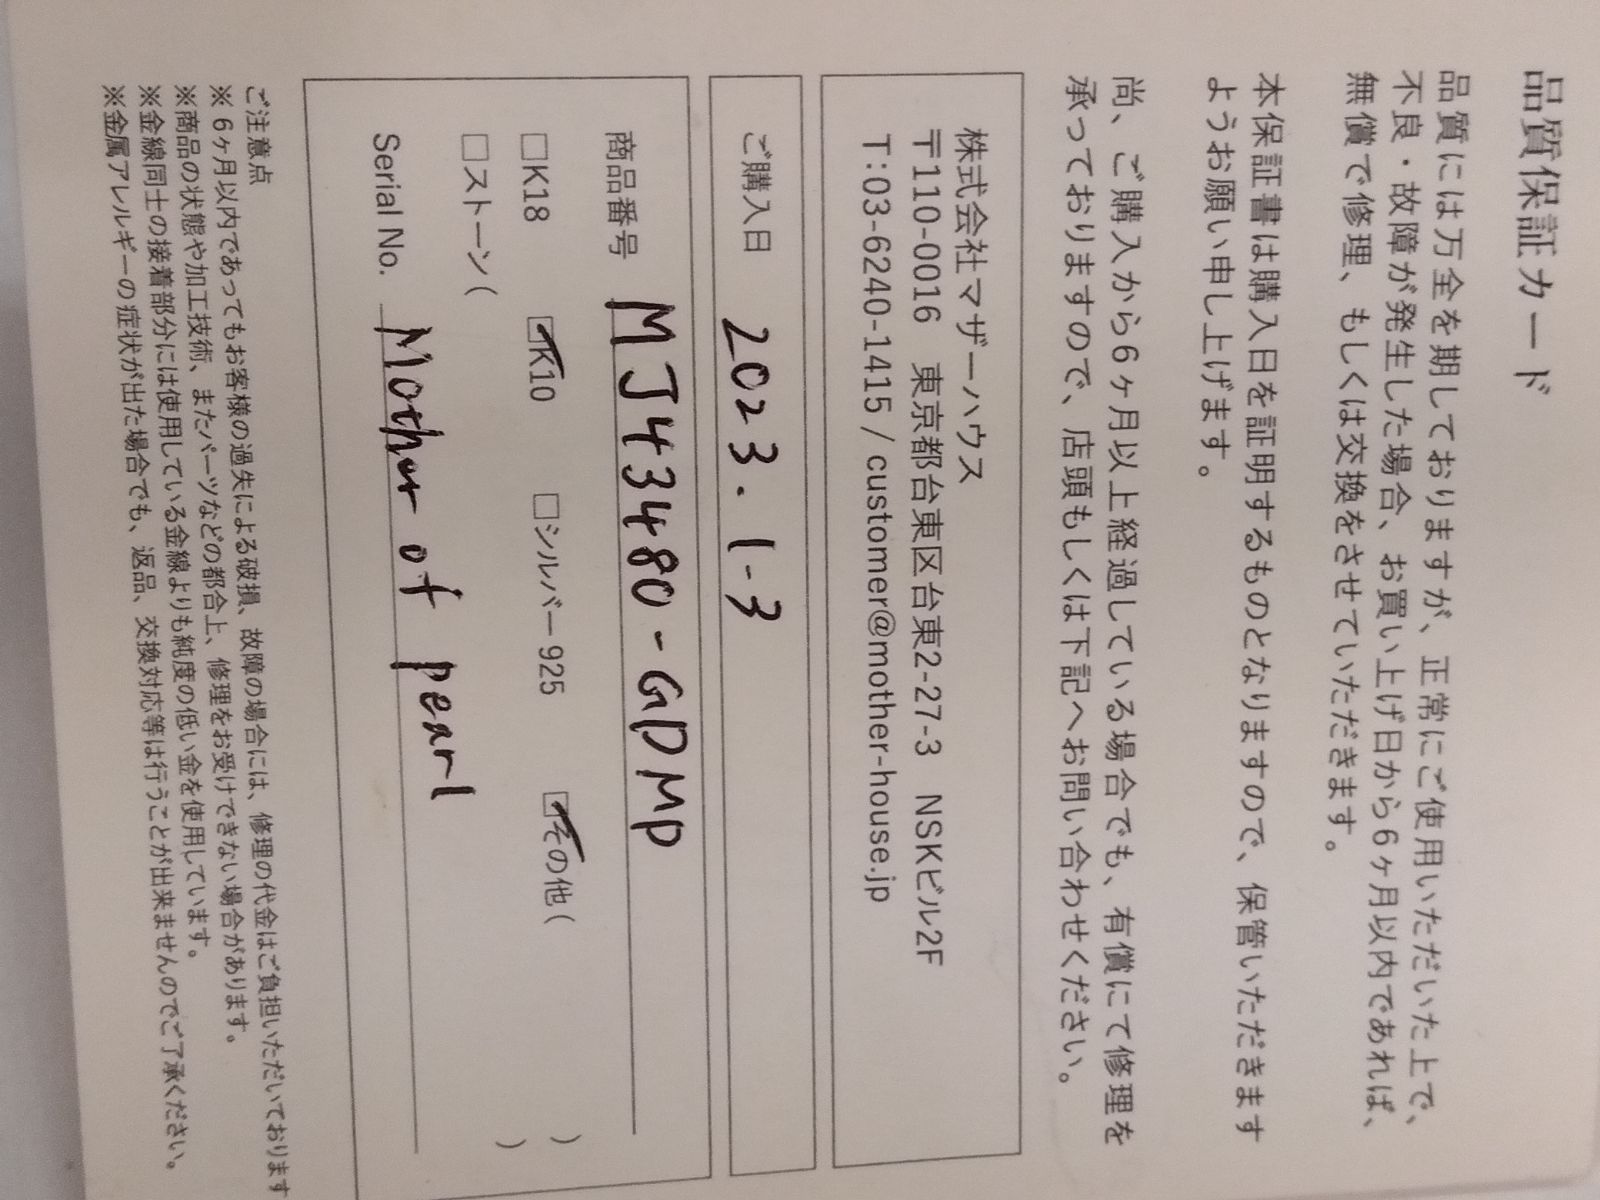 品質保証カード
品質には万全を期しておりますが、正常にご使用いただいた上で、
不良・故障が発生した場合、お買い上げ日から6ヶ月以内であれば、
無償で修理、もしくは交換をさせていただきます。
本保証書は購入日を証明するものとなりますので、保管いただきます
ようお願い申し上げます。
尚、ご購入から6ヶ月以上経過している場合でも、有償にて修理を
承っておりますので、店頭もしくは下記へお問い合わせください。
株式会社マザーハウス
〒110-0016 東京都台東区台東2-27-3 NSKビル2F
T:03-6240-1415 / customer@mother-house.jp
ご購入日 2023.1.3
商品番号 MJ43480-GDMP
□K18 ☑K10 □シルバー925 ☑その他( )
□ストーン( )
Serial No. Mother of pearl
ご注意点
※6ヶ月以内であってもお客様の過失による破損、故障の場合には、修理の代金はご負担いただいております
※商品の状態や加工技術、またパーツなどの都合上、修理をお受けできない場合があります。
※金線同士の接着部分には使用している金線よりも純度の低い金を使用しています。
※金属アレルギーの症状が出た場合でも、返品、交換対応等は行うことが出来ませんのでご了承ください。